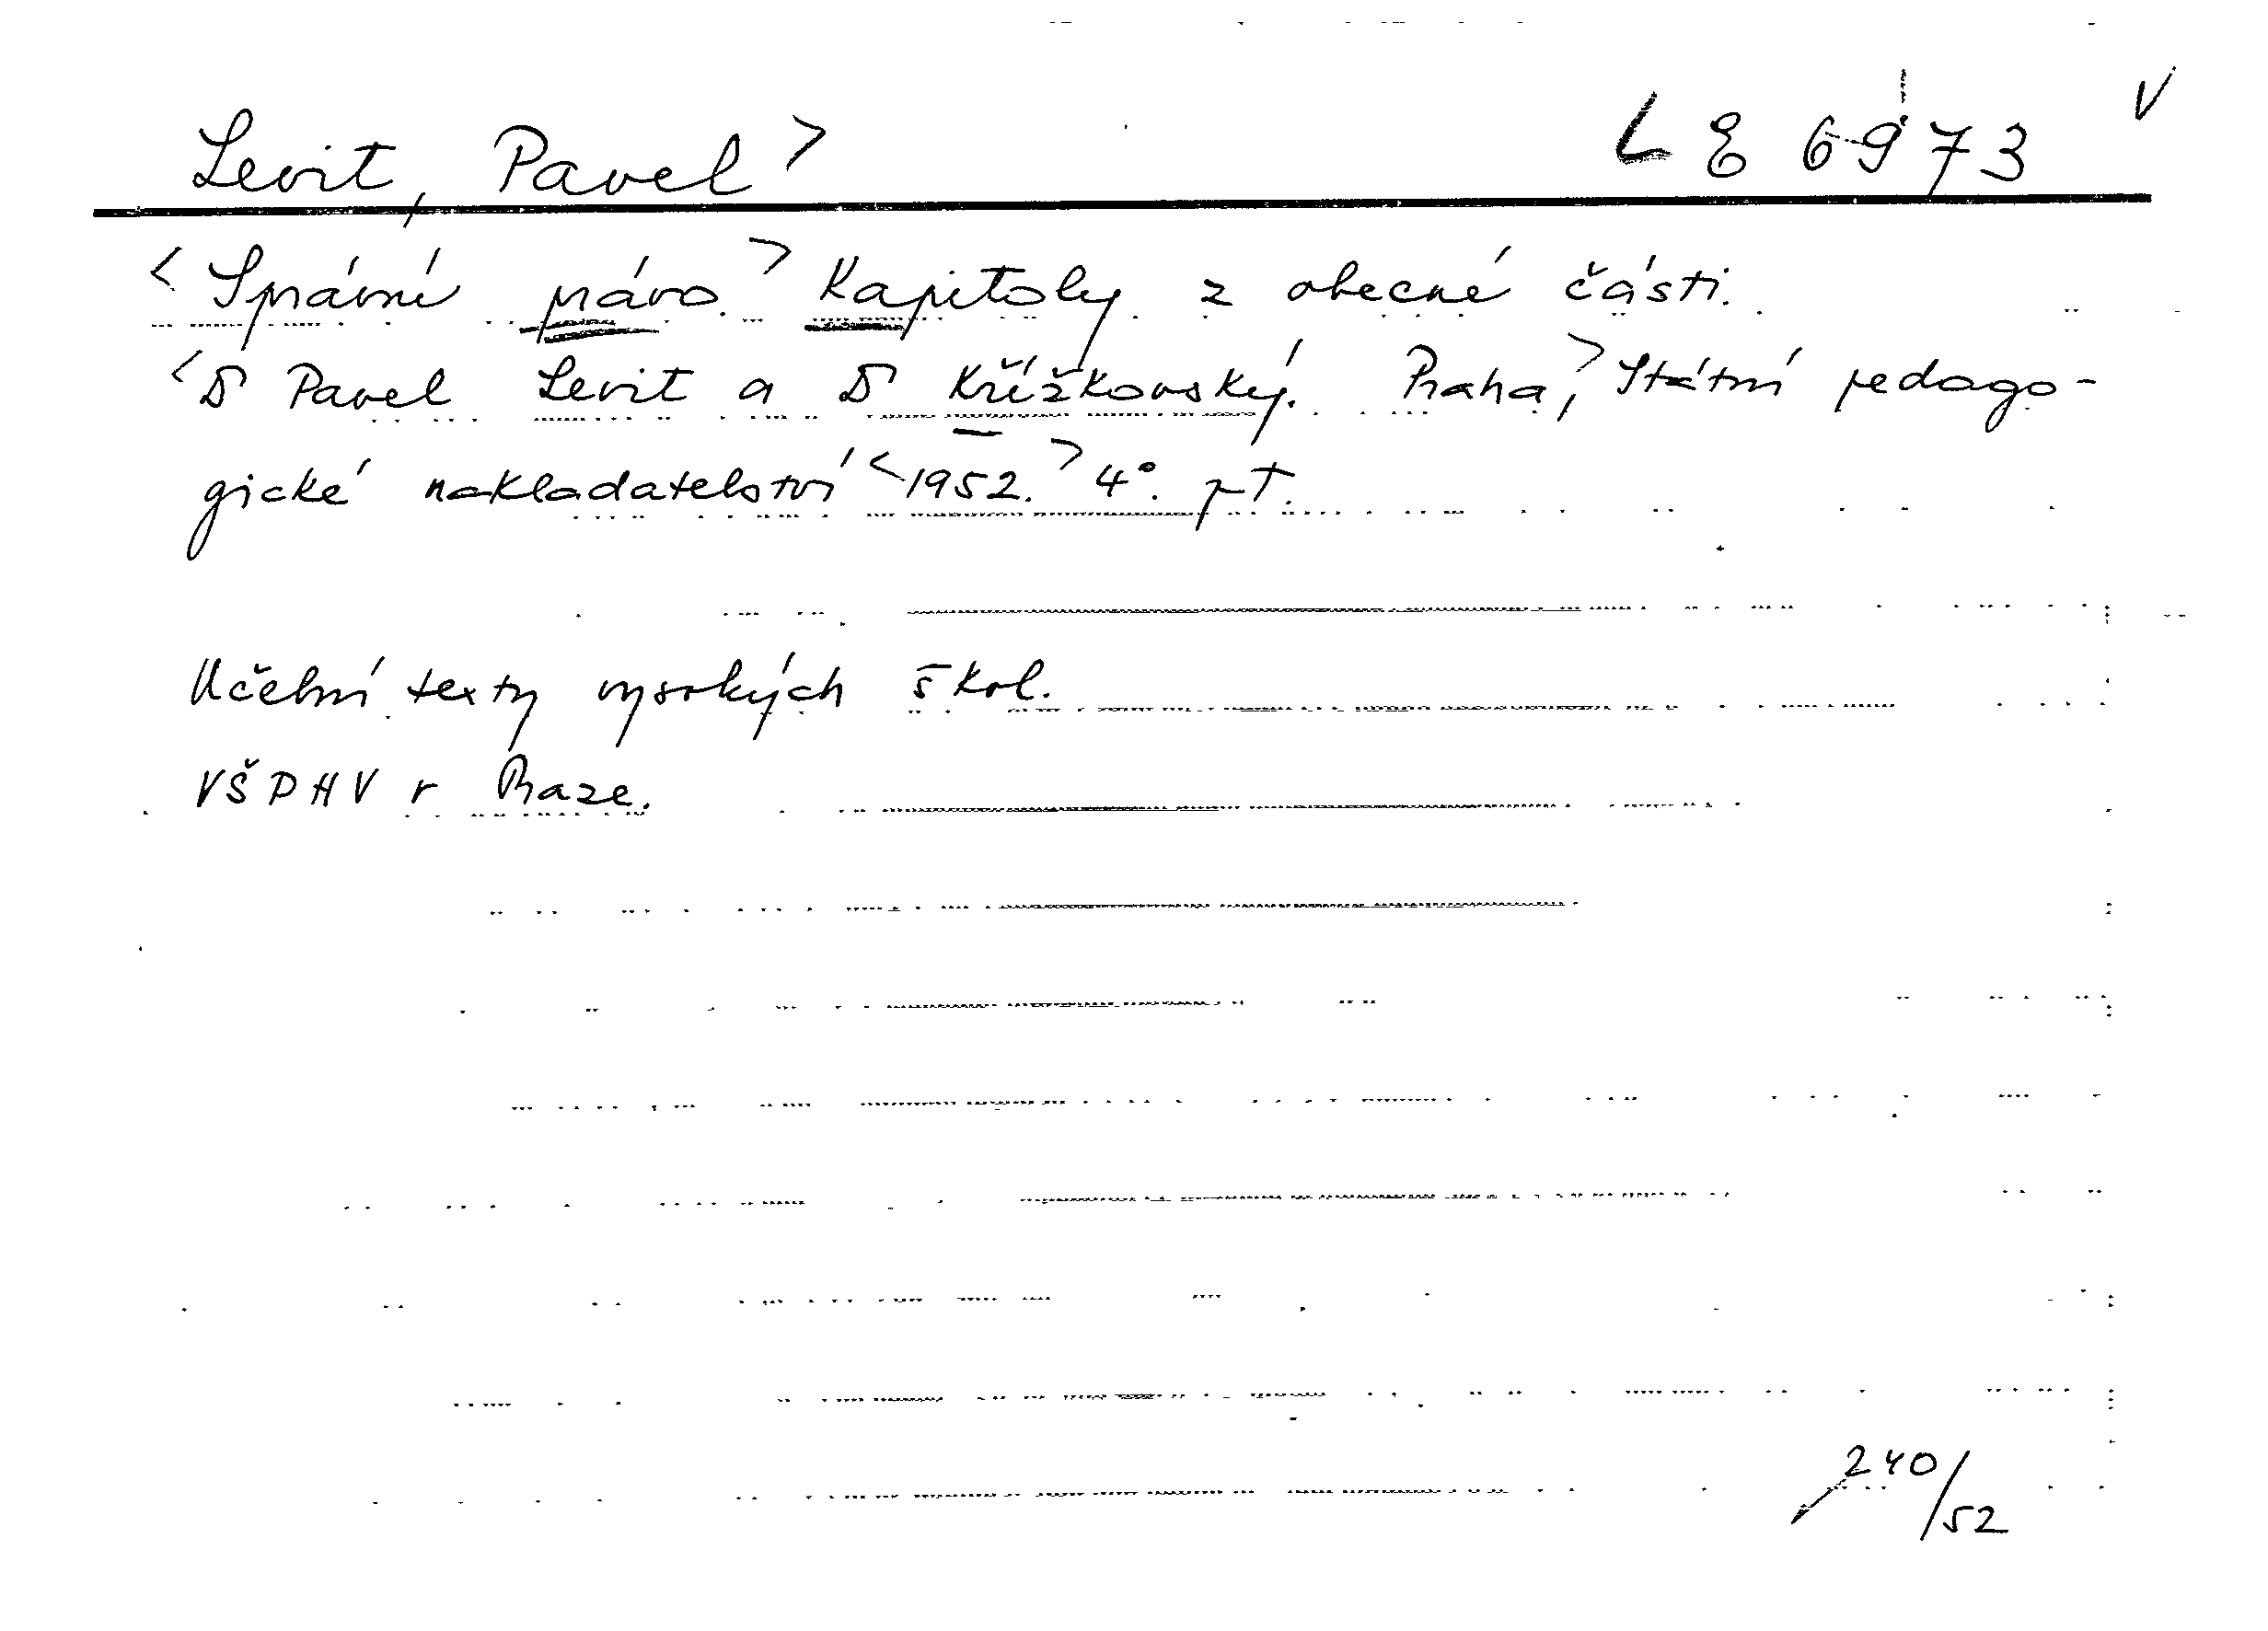 Levit, Pavel > < E 6973 v
< Správní právo. > Kapitoly z obecné části.
< D Pavel Levit a D Křížkovský. Praha, > Státní pedago-
gické nakladatelství < 1952. > 4°.
Učební texty vysokých škol.
VŠPHV v Praze.
240/52